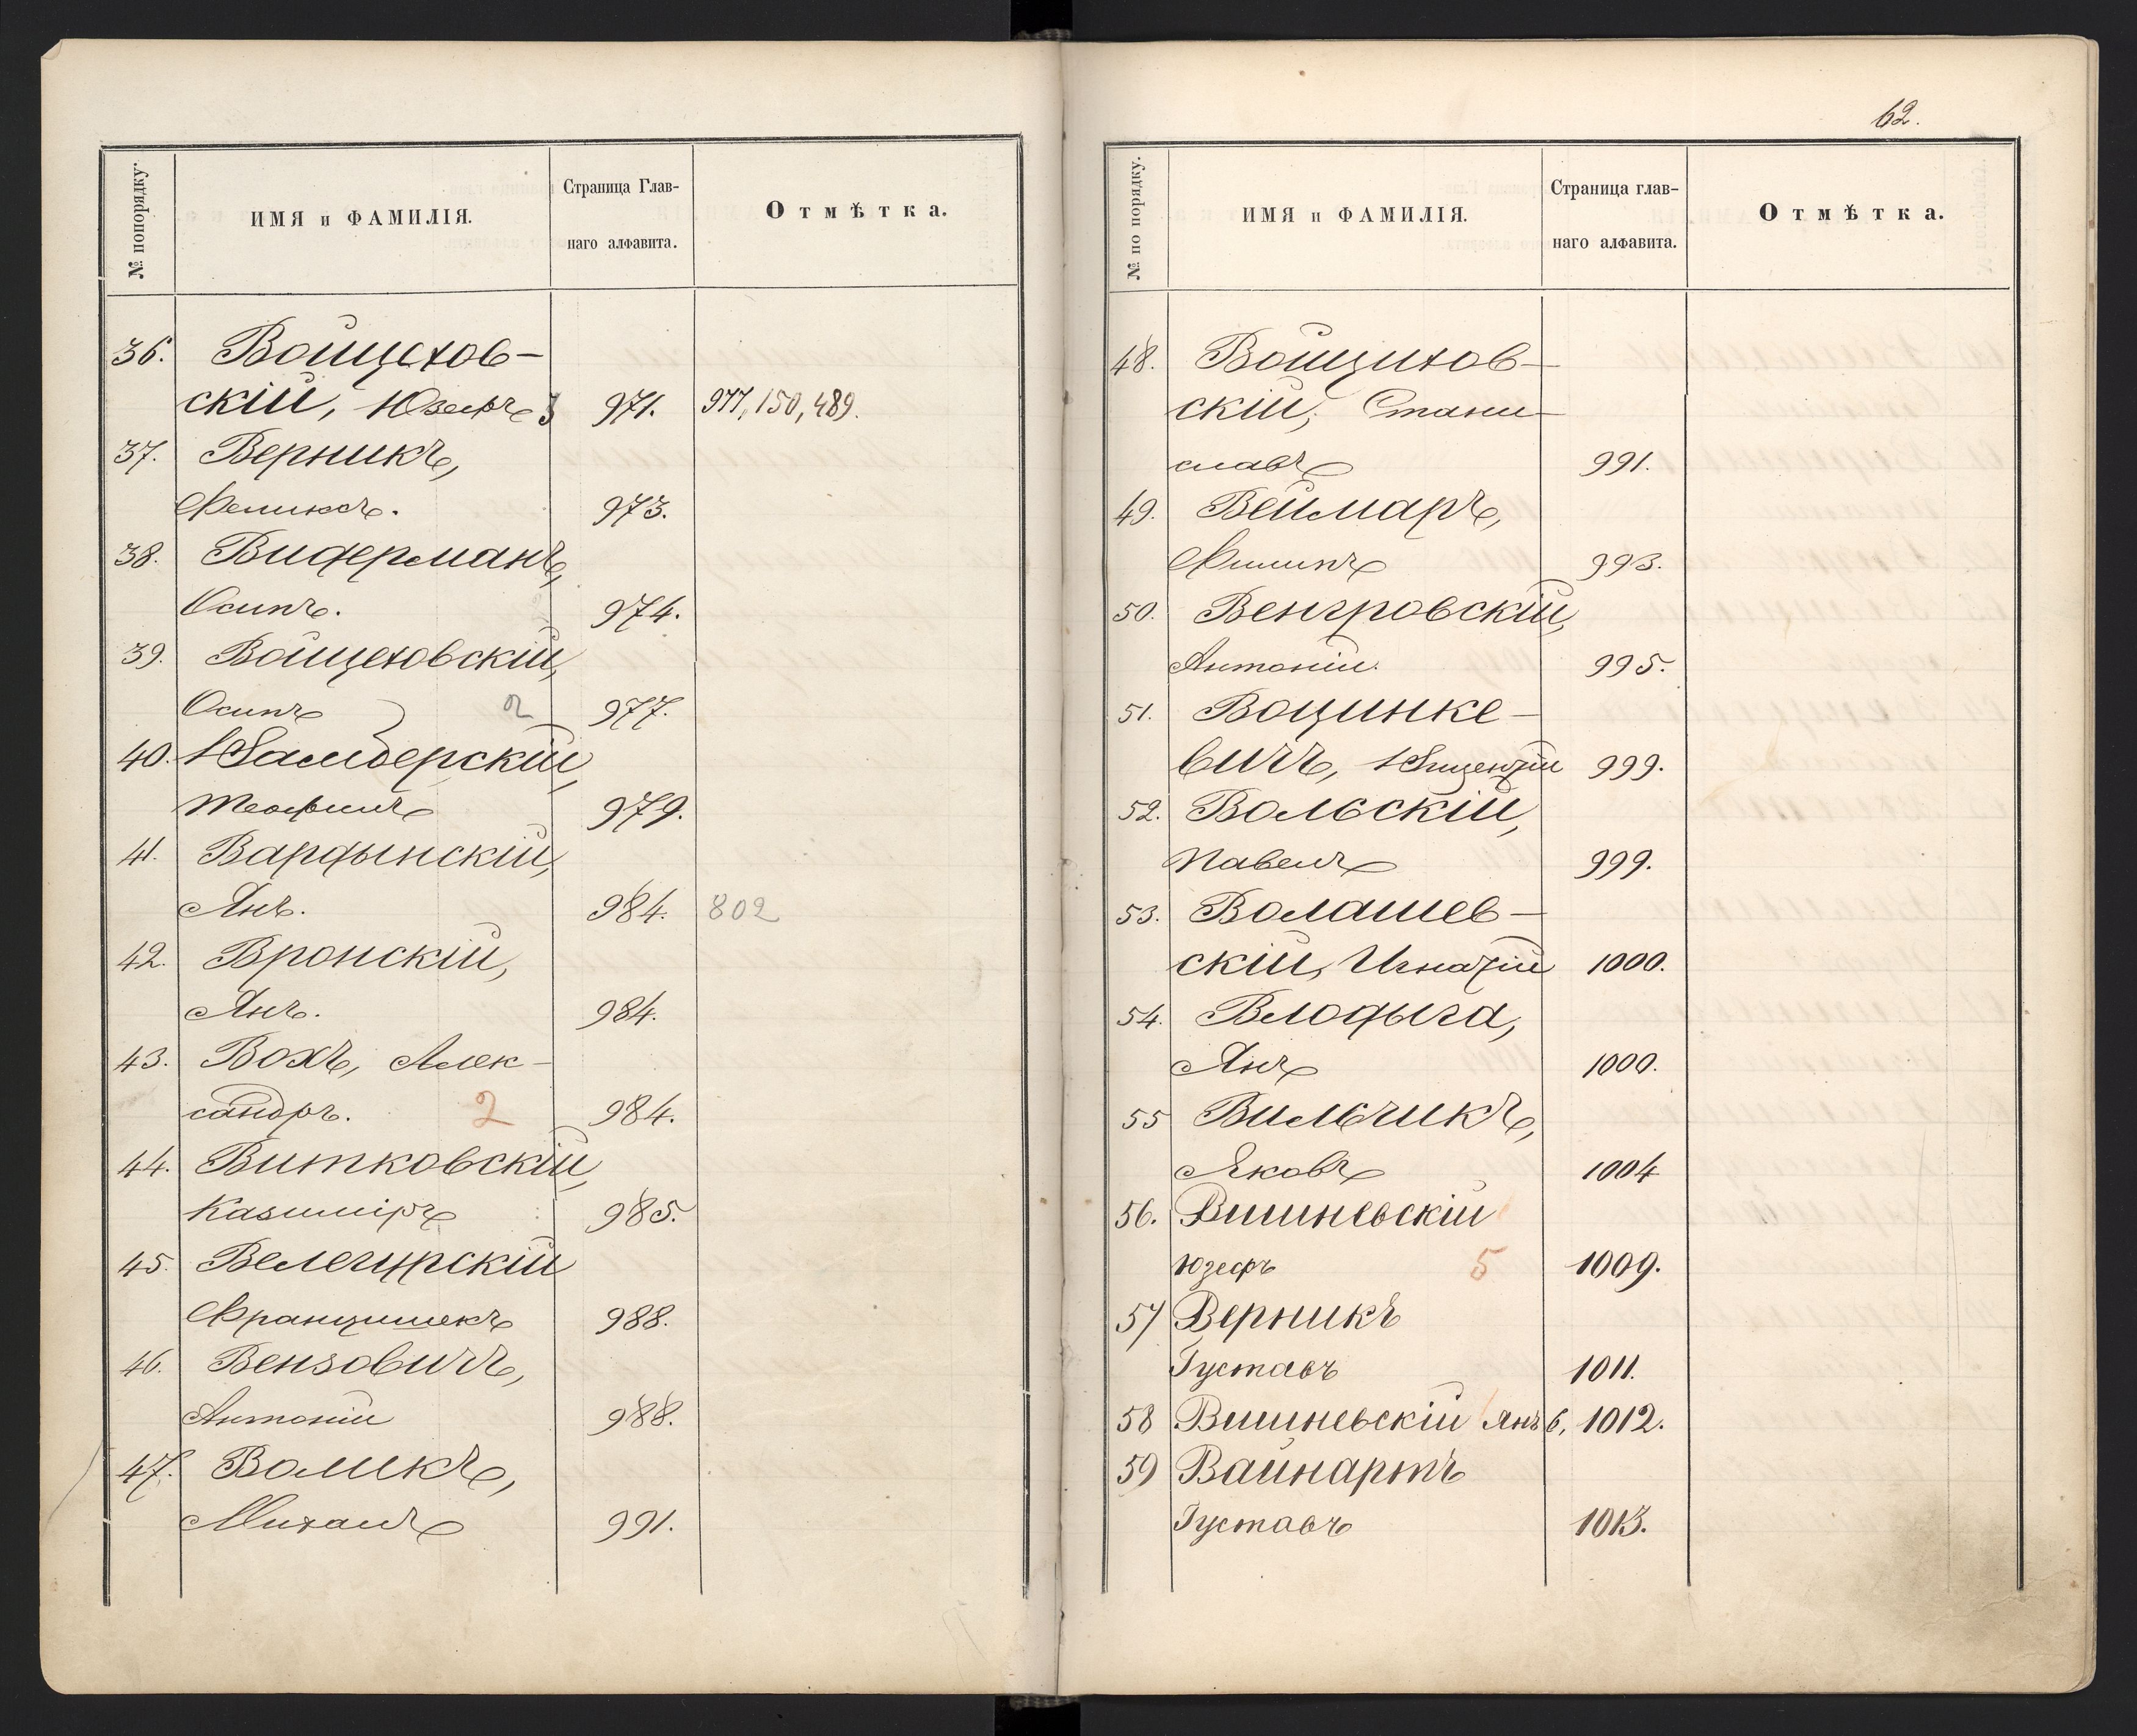 № попорядку.
ИМЯ и ФАМИЛІЯ.
Страница Глав-
наго алфавита.
Отмѣтка.
36. Войцехов-
скій, Юзефъ 3 971. 977, 150, 489.
37. Верникъ,
Феликсъ. 973.
38. Видерманъ,
Осипъ. 974.
39. Войцеховскій,
Осипъ 2 977.
40. Замберскій,
Теофилъ 979.
41. Вардынскій,
Янъ. 984. 802
42. Вронскій,
Янъ. 984.
43. Вохъ, Алек-
сандръ. 2 984.
44. Витковскій,
Казиміръ 985.
45. Велегурскій
Францишекъ 988.
46. Вензовичъ,
Антоній 988.
47. Воликъ,
Михаилъ 991.
62.
№ по порядку.
ИМЯ и ФАМИЛІЯ.
Страница глав-
наго алфавита.
Отмѣтка.
48. Войцихов-
скій, Стани-
славъ 991.
49. Веймаръ,
Филипъ 993.
50. Венгровскій,
Антоній. 995.
51. Воцинке-
вичъ, Винцентій 999.
52. Вольскій,
Павелъ 999.
53. Волашев-
скій, Игнатій 1000.
54. Влодыга,
Янъ 1000.
55 Вильчикъ,
Яковъ 1004
56. Вишневскій
Юзефъ 5 1009.
57 Верникъ
Густавъ 1011.
58 Вишневскій Янъ 6, 1012.
59 Вайнартъ
Густавъ 1013.